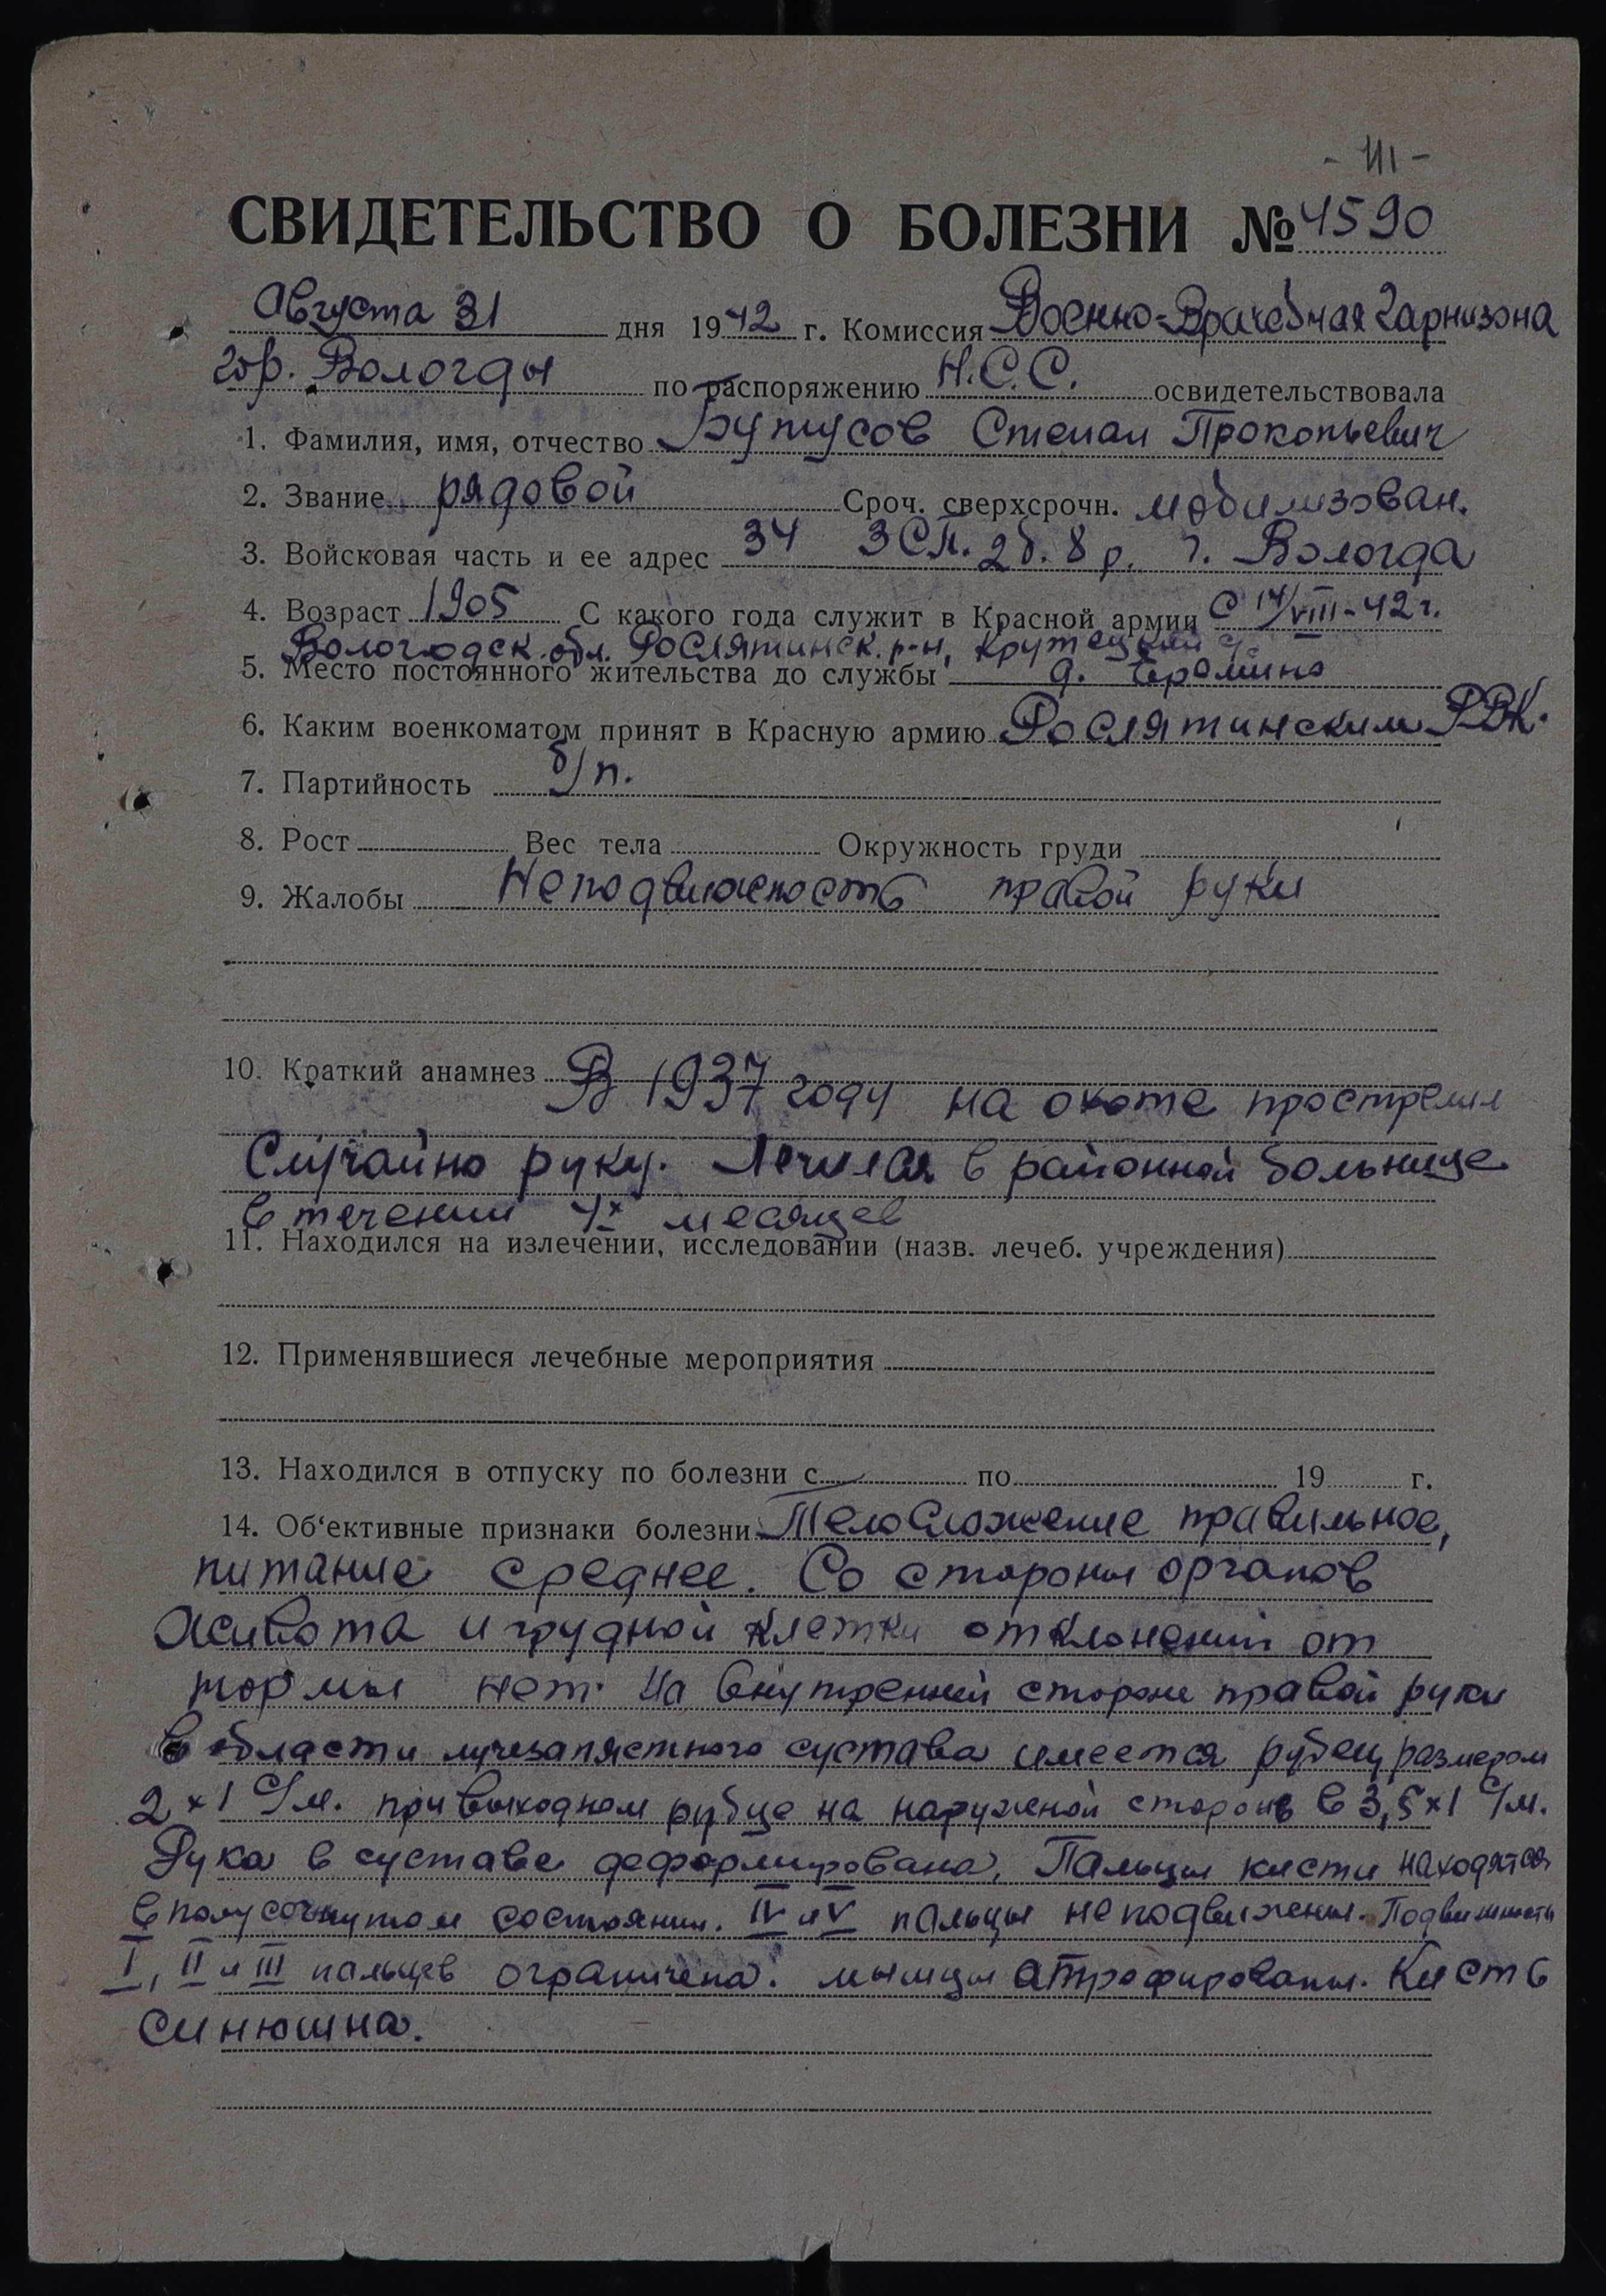 СВИДЕТЕЛЬСТВО О БОЛЕЗНИ № 4590
Августа 31 дня 1942 г. Комиссия Военно-Врачебная гарнизона
гор. Вологды по распоряжению Н.С.С. освидетельствовала
1. Фамилия, имя, отчество Бутусов Степан Прокопьевич
2. Звание рядовой Сроч. сверхсрочн. мобилизован.
3. Войсковая часть и ее адрес 34 ЗСП. 2б. 8р. г. Вологда
4. Возраст 1905 С какого года служит в Красной армии С 14/VIII-42 г.
Вологодск. обл. Рослятинск. р-н, Крутецкий
5. Место постоянного жительства до службы д.
6. Каким военкоматом принят в Красную армию Рослятинским РВК.
7. Партийность б/п.
8. Рост Вес тела Окружность груди
9. Жалобы Неподвижность правой руки
10. Краткий анамнез В 1937 году на охоте прострелил
Случайно руку. Лечился в районной больнице
в течении 4х месяцев
11. Находился на излечении, исследовании (назв. лечеб. учреждения)
12. Применявшиеся лечебные мероприятия
13. Находился в отпуску по болезни с по 19 г.
14. Об‘ективные признаки болезни Телосложение правильное,
питание среднее. Со стороны органов
живота и грудной клетки отклонений от
нормы нет. На внутренней стороне правой руки
в области лучезапястного сустава имеется рубец размером
2×1 с/м. при выходном рубце на наружной стороне в 3,5×1 с/м.
Рука в суставе деформирована, Пальцы кисти находятся
в полусогнутом состоянии. IV и V пальцы неподвижены. Подвижность
I, II и III пальцев ограничена. мышцы атрофированы. Кисть
синюшна.